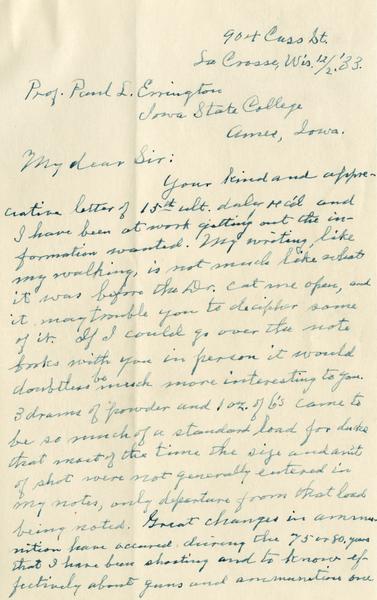 904 Cass St.
La Crosse, Wis. 12/2/'33.
Prof. Paul L. Errington
Iowa State College
Ames, Iowa.
My dear Sir:
Your kind and appre-
ciative letter of 15th ult. duly rec'd and
I have been at work getting out the in-
formation wanted. My writing, like
my walking, is not much like what
it was before the Dr. cut me open, and
it may trouble you to decipher some
of it. If I could go over the note
books with you in person it would
doubtless be much more interesting to you.
3 drams of powder and 1 oz. of 6's came to
be so much of a standard load for ducks
that most of the time the size and am't
of shot were not generally entered in
my notes, only departure from that load
being noted. Great changes in ammu-
nition have occured during the 75 or 80 years
that I have been shooting and to know ef-
fectively about guns and ammunition one